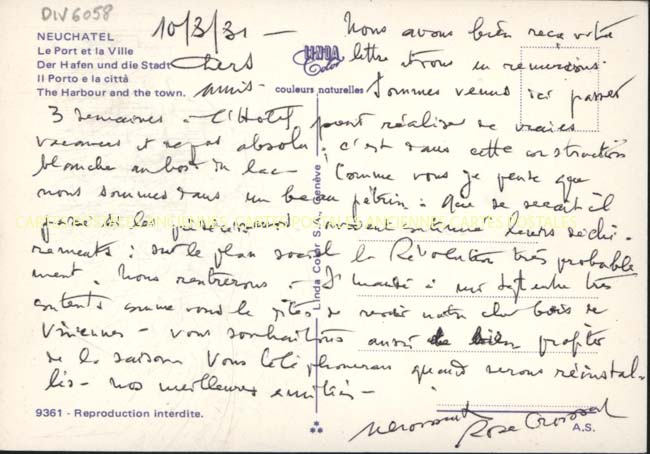 DIV6058
NEUCHATEL
Le Port et la Ville
Der Hafen und die Stadt
Il Porto e la città
The Harbour and the town.
LINDA
Color
couleurs naturelles
10/3/31 — Nous avons bien reçu votre
Chers lettre et vous en remercions.
amis - Sommes venus ici passer
3 semaines - L'Hotel pour réaliser de vraies
vacances et repos absolu : c'est dans cette construction
blanche au bord du lac - Comme vous je pense que
nous sommes dans un beau pétrin. Que se serait-il
passé si les avaient leurs déchi-
rements : sur le plan social la Révolution très probable
ment. Nous rentrerons - très
contents comme vous le dites de revoir notre cher bois de
Vincennes - vous souhaitons aussi de bien profiter
de la saison Vous téléphonerai quand serons réinstal-
lés - nos meilleures amitiés -
Rose
Linda Color S.A. Genève
CARTES POSTALES ANCIENNES CARTES POSTALES ANCIENNES CARTES POSTALES
9361 - Reproduction interdite.
A.S.